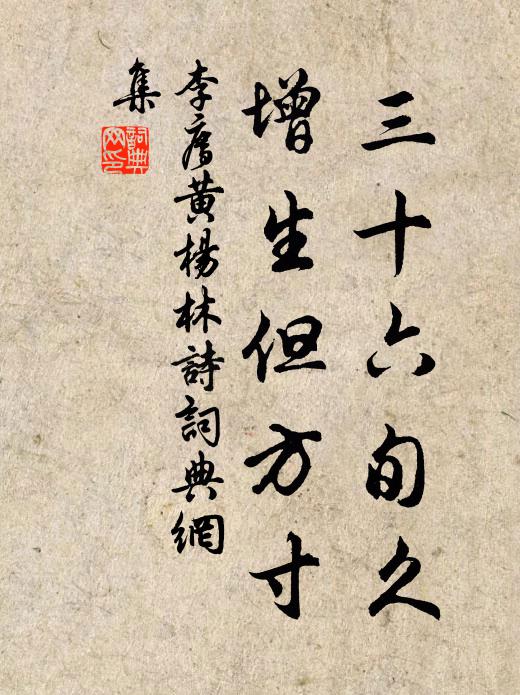 三十六旬久
增生但方寸
李廌黄楊林詩詞典網
集
詞典網印